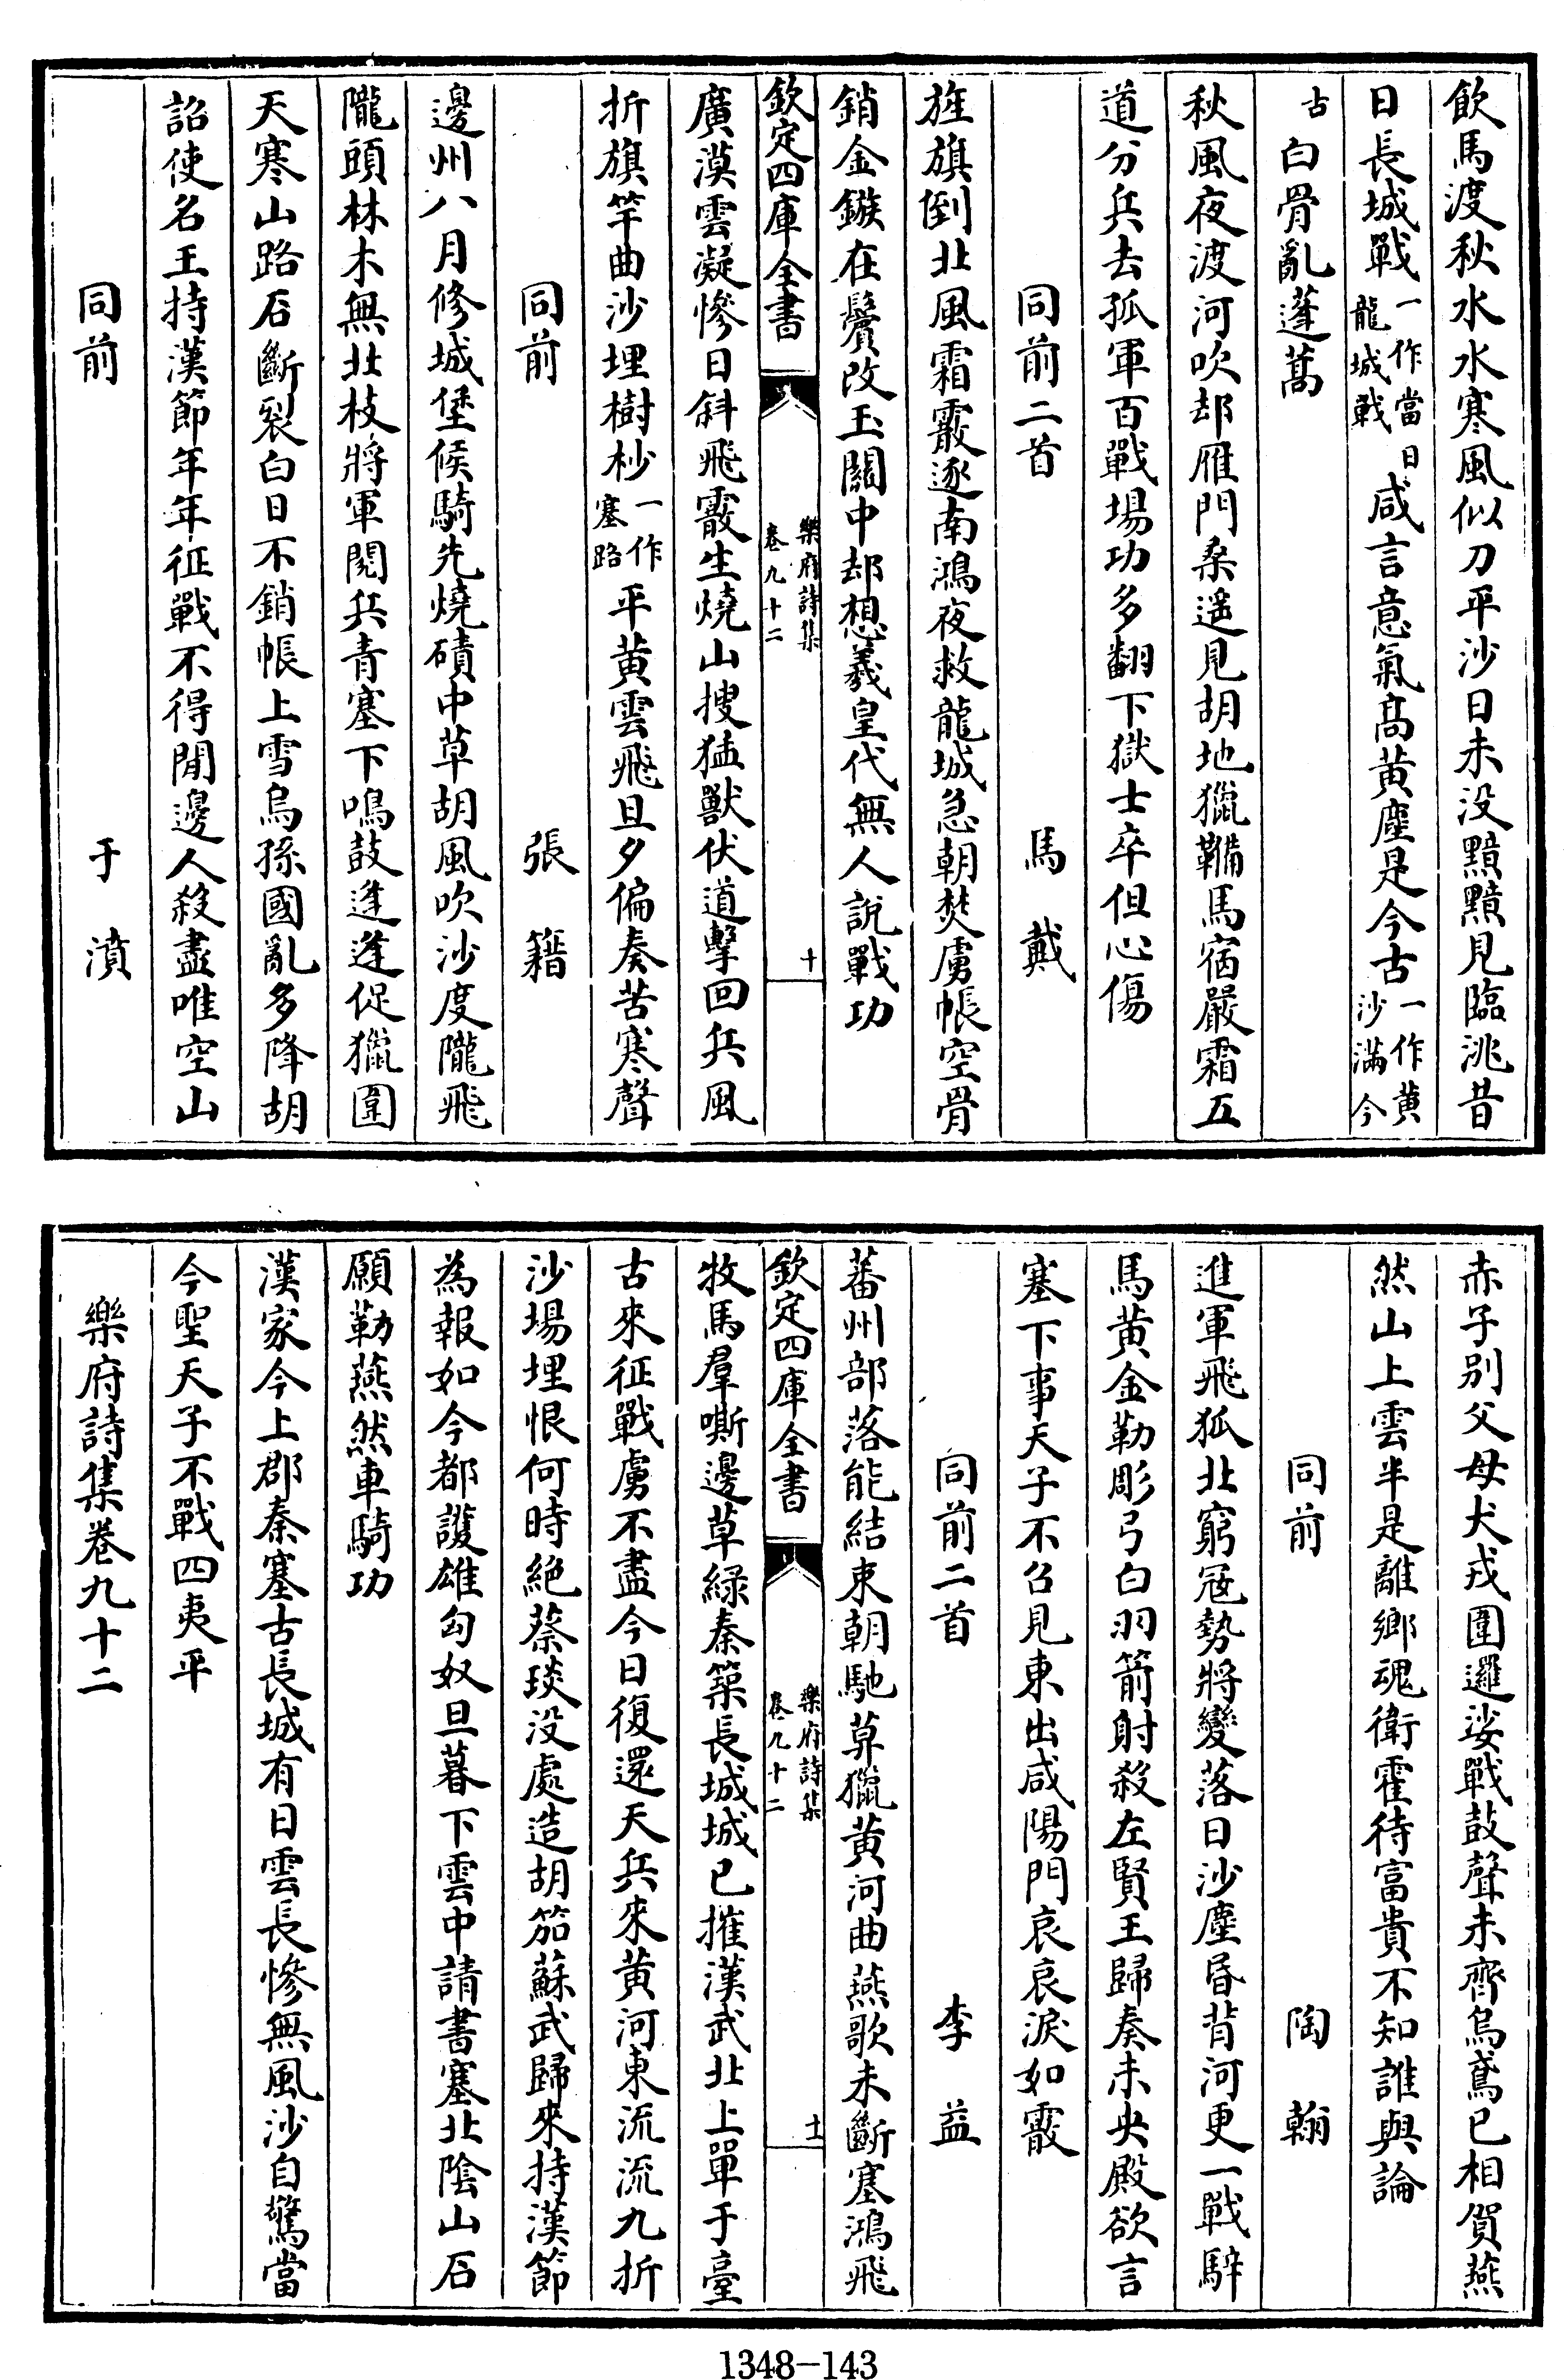 飲馬渡秋水水寒風似刀平沙日未没黯黯見臨洮昔
日長城戰一作當日龍城戰咸言意氣髙黄塵是今古一作黄沙滿今
古白骨亂蓬蒿
秋風夜渡河吹却雁門桑遥見胡地獵鞴馬宿嚴霜五
道分兵去孤軍百戰場功多翻下獄士卒但心傷
同前二首 馬戴
旌旗倒北風霜霰逐南鴻夜救龍城急朝焚虜帳空骨
銷金鏃在鬢改玉關中却想羲皇代無人說戰功
欽定四庫全書 樂府詩集 卷九十二 十
廣漠雲凝慘日斜飛霰生燒山搜猛獸伏道擊回兵風
折旗竿曲沙埋樹杪一作塞路平黄雲飛旦夕偏奏苦寒聲
同前 張籍
邊州八月修城堡候騎先燒磧中草胡風吹沙度隴飛
隴頭林木無北枝將軍閱兵青塞下鳴鼓逢逢促獵圍
天寒山路石斷裂白日不銷帳上雪烏孫國亂多降胡
詔使名王持漢節年年征戰不得閒邊人殺盡唯空山
同前 于濆
赤子别父母犬戎圍邏娑戰鼓聲未齊烏鳶已相賀燕
然山上雲半是離鄉魂衛霍待富貴不知誰與論
同前 陶翰
進軍飛狐北窮宼勢將變落日沙塵昏背河更一戰騂
馬黄金勒彫弓白羽箭射殺左賢王歸奏未央殿欲言
塞下事天子不召見東出咸陽門哀哀淚如霰
同前二首 李益
蕃州部落能結束朝馳草獵黄河曲燕歌未斷塞鴻飛
欽定四庫全書 樂府詩集 卷九十二 十一
牧馬羣嘶邊草緑秦築長城城已摧漢武北上單于臺
古來征戰虜不盡今日復還天兵來黄河東流流九折
沙場埋恨何時絶蔡琰没處造胡笳蘇武歸來持漢節
為報如今都䕶雄匈奴且暮下雲中請書塞北陰山石
願勒燕然車騎功
漢家今上郡秦塞古長城有日雲長慘無風沙自驚當
今聖天子不戰四夷平
樂府詩集卷九十二
1348-143